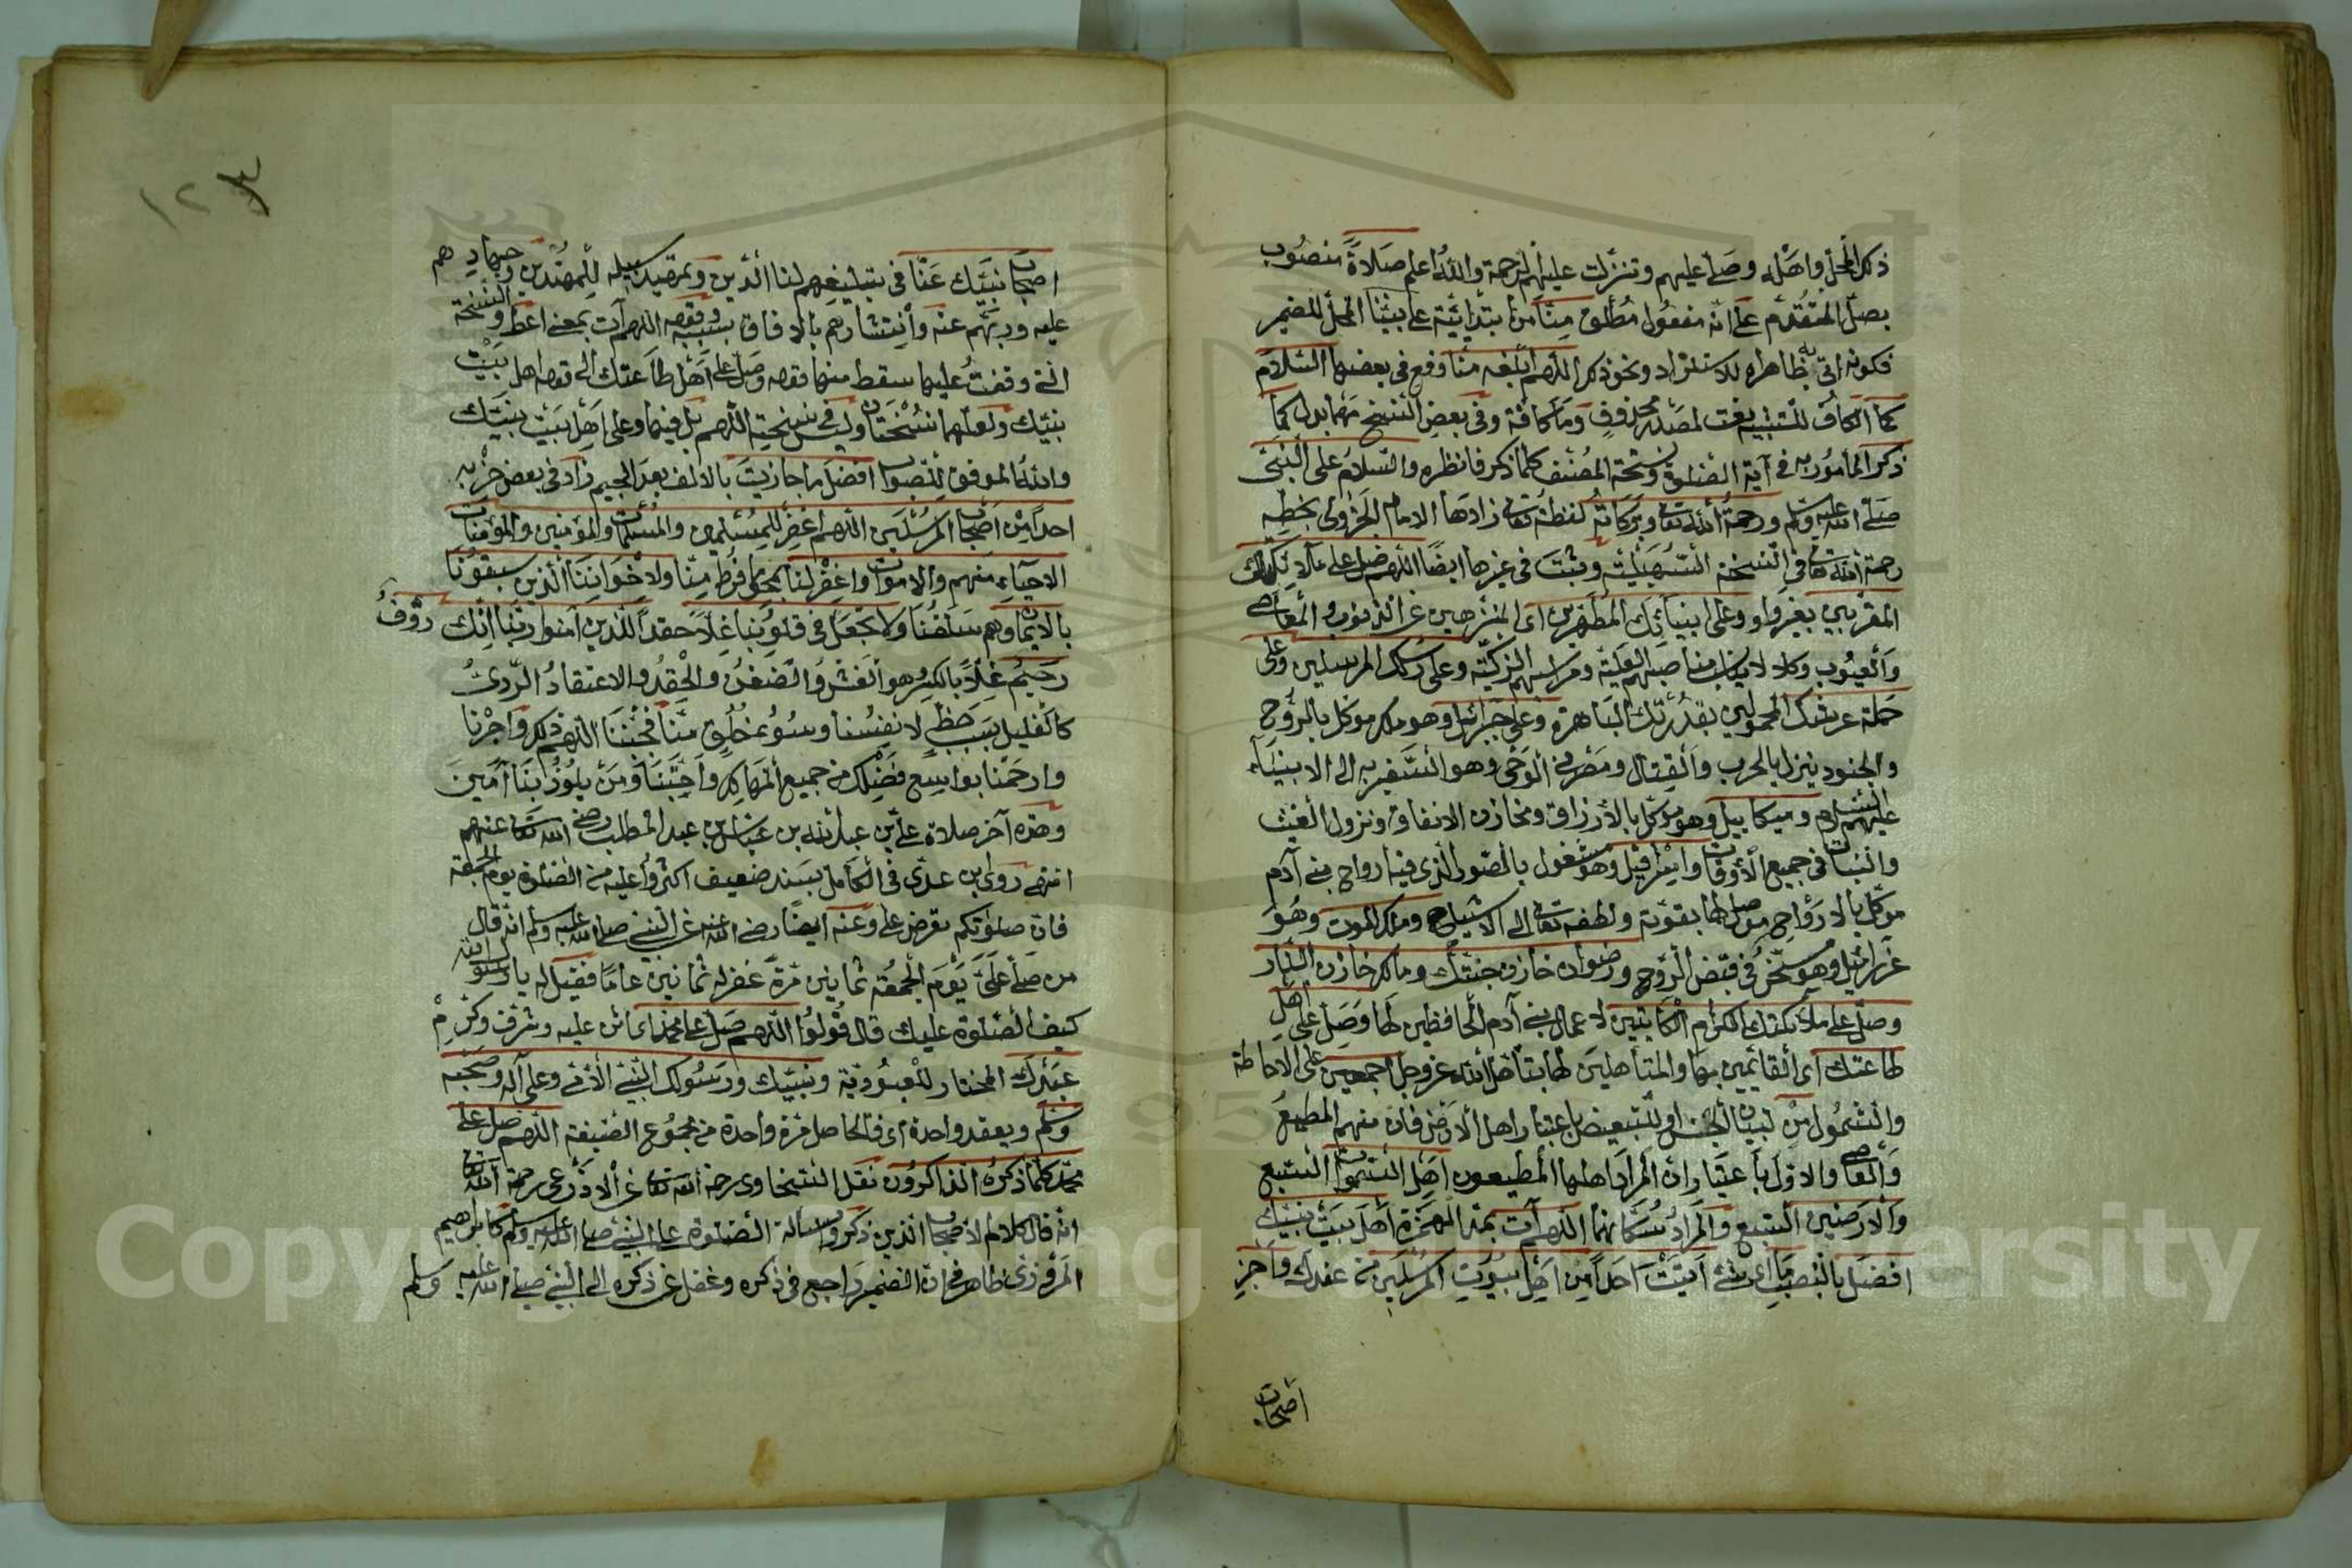 ذكر المحل واهله وصل عليهم وتنزلت عليهم الرحمة والله اعلم صلاة منصوب
بصل المتقدم على انه مفعول مطلق منا من ابتدائية على بيتنا المحل للضمير
فكونه اتى به ظاهرا للاستلزاد ونحو ذكر اللهم ابلغه منا وقع في بعضها السلام
كما الكاف للتشبيه نعت لمصدر محذوف وما كافة وفي بعض النسخ مهما بدل كما
ذكر المامور به في آية الصلوة ونسخة المصنف كلما ذكر فانظره والسلام على النبي
صلى الله عليه وسلم ورحمة الله تعالى وبركاته لفظة تعالى زادها الامام الجزولى بخطه
رحمة الله تعالى في النسخة السهيلية وثبت في غيرها ايضا اللهم صل على ملائكتك
المقربين بغير واو وعلى انبيائك المطهرين اى المنزهين عن الذنوب والمعاصى
والعيوب وكلا لا يناسب مناصبهم العلية ومراسهم الزكية وعلى رسلك المرسلين وعلى
حملة عرشك المحمولين بقدرتك الباهرة وعلى جبرائيل وهو ملك موكل بالروح
والجنود ينزل بالحرب والقتال ومصرف الوحى وهو السفير به الى الانبياء
عليهم السلام وميكاييل وهو موكل بالأرزاق ومخازن الانفاق ونزول الغيث
والنبات في جميع الأوقات واسرافيل وهو مشغول بالصور الذى فيه ارواح بنى آدم
موكل بالارواح موصلها بقوته ولطفه تعالى الى الاشباح وملك الموت وهو
عزرائيل وهو مسخر في قبض الروح ورضوان خازن جنتك ومالك خازن النار
وصل على ملائكتك الكرام الكاتبين لاعمال بنى آدم الحافظين لها وصل على اهل
طاعتك اى القائمين بها والمتأهلين لها بتأهل الله عز وجل اجمعين على الاحاطة
والشمول من لبيان الجنس او للتبعيض باعتبار اهل الارض فان منهم المطيع
والعاصى والاول باعتبار ان المراد اهلها المطيعون اهل السموات السبع
والارضين السبع والمراد سكانهما اللهم آت بمد الهمزة اهل بيت نبيك
افضل بالنصب اى شئ اتيت احدا من اهل بيوت المرسلين من عندك واجز
اصحاب
١٢٤
اصحاب نبيك عنا في تبليغهم لنا الدين وتمهيد سبيله للمهتدين وجهادهم
عليه وذبهم عنه وانتشارهم بالافاق بسببه وفقه اللهم آت بمعنى اعط والنسخة
التى وقفت عليها سقط منها فقه وصل على اهل طاعتك الى قوله اهل بيت
نبيك ولعلهما نسختان وليس في نسخة اللهم بل فيها وعلى اهل بيت نبيك
والله الموفق للصواب افضل ما جازيت بالالف بعد الجيم زاد في بعض خز به
احدا من اصحاب المرسلين اللهم اغفر للمسلمين والمسلمات والمؤمنين والمؤمنات
الاحياء منهم والاموات واغفر لنا بمحو ما فرط منا ولاخواننا الذين سبقونا
بالايمان وهم سلفنا ولا تجعل في قلوبنا غلا حقدا للذين آمنوا ربنا انك رؤف
رحيم غلا بالكسر هو الغش والضغن والحقد والاعتقاد الردى
كالغليل بسبب حظ لانفسنا وسوء خلق منا فجنبنا اللهم ذلك واجزنا
وارحمنا بواسع فضلك من جميع المهالك واحبتنا ومن يلوذ بنا آمين
وهذه آخر صلاة على بن عبد الله بن عباس بن عبد المطلب رضى الله تعالى عنهم
انتهى روى بن عدى في الكامل بسند ضعيف اكثروا عليه من الصلوة يوم الجمعة
فان صلوتكم تعرض على وعنه ايضا رضى الله عنه عن النبى صلى الله عليه وسلم انه قال
من صلى على يوم الجمعة ثمانين مرة غفر له ثمانين عاما فقيل له يا رسول الله
كيف الصلوة عليك قال قولوا اللهم صل على محمد اى اثن عليه وشرف وكرم
عبدك المختار للعبودية ونبيك ورسولك النبى الأمى وعلى آله وصحبه
وسلم ويعقد واحدة اى فالحاصل مرة واحدة من مجموع الصيغة اللهم صل على
محمد كلما ذكره الذاكرون نقل السخاوى رحمة الله تعالى عن الاذرعى رحمة الله تعالى
انه قال كلام الاصحاب الذين ذكروا مسالة الصلوة على النبى صلى الله عليه وسلم كابراهيم
المروزى ظاهره ان الضمير راجع في ذكره وغفل عن ذكره الى النبى صلى الله عليه وسلم